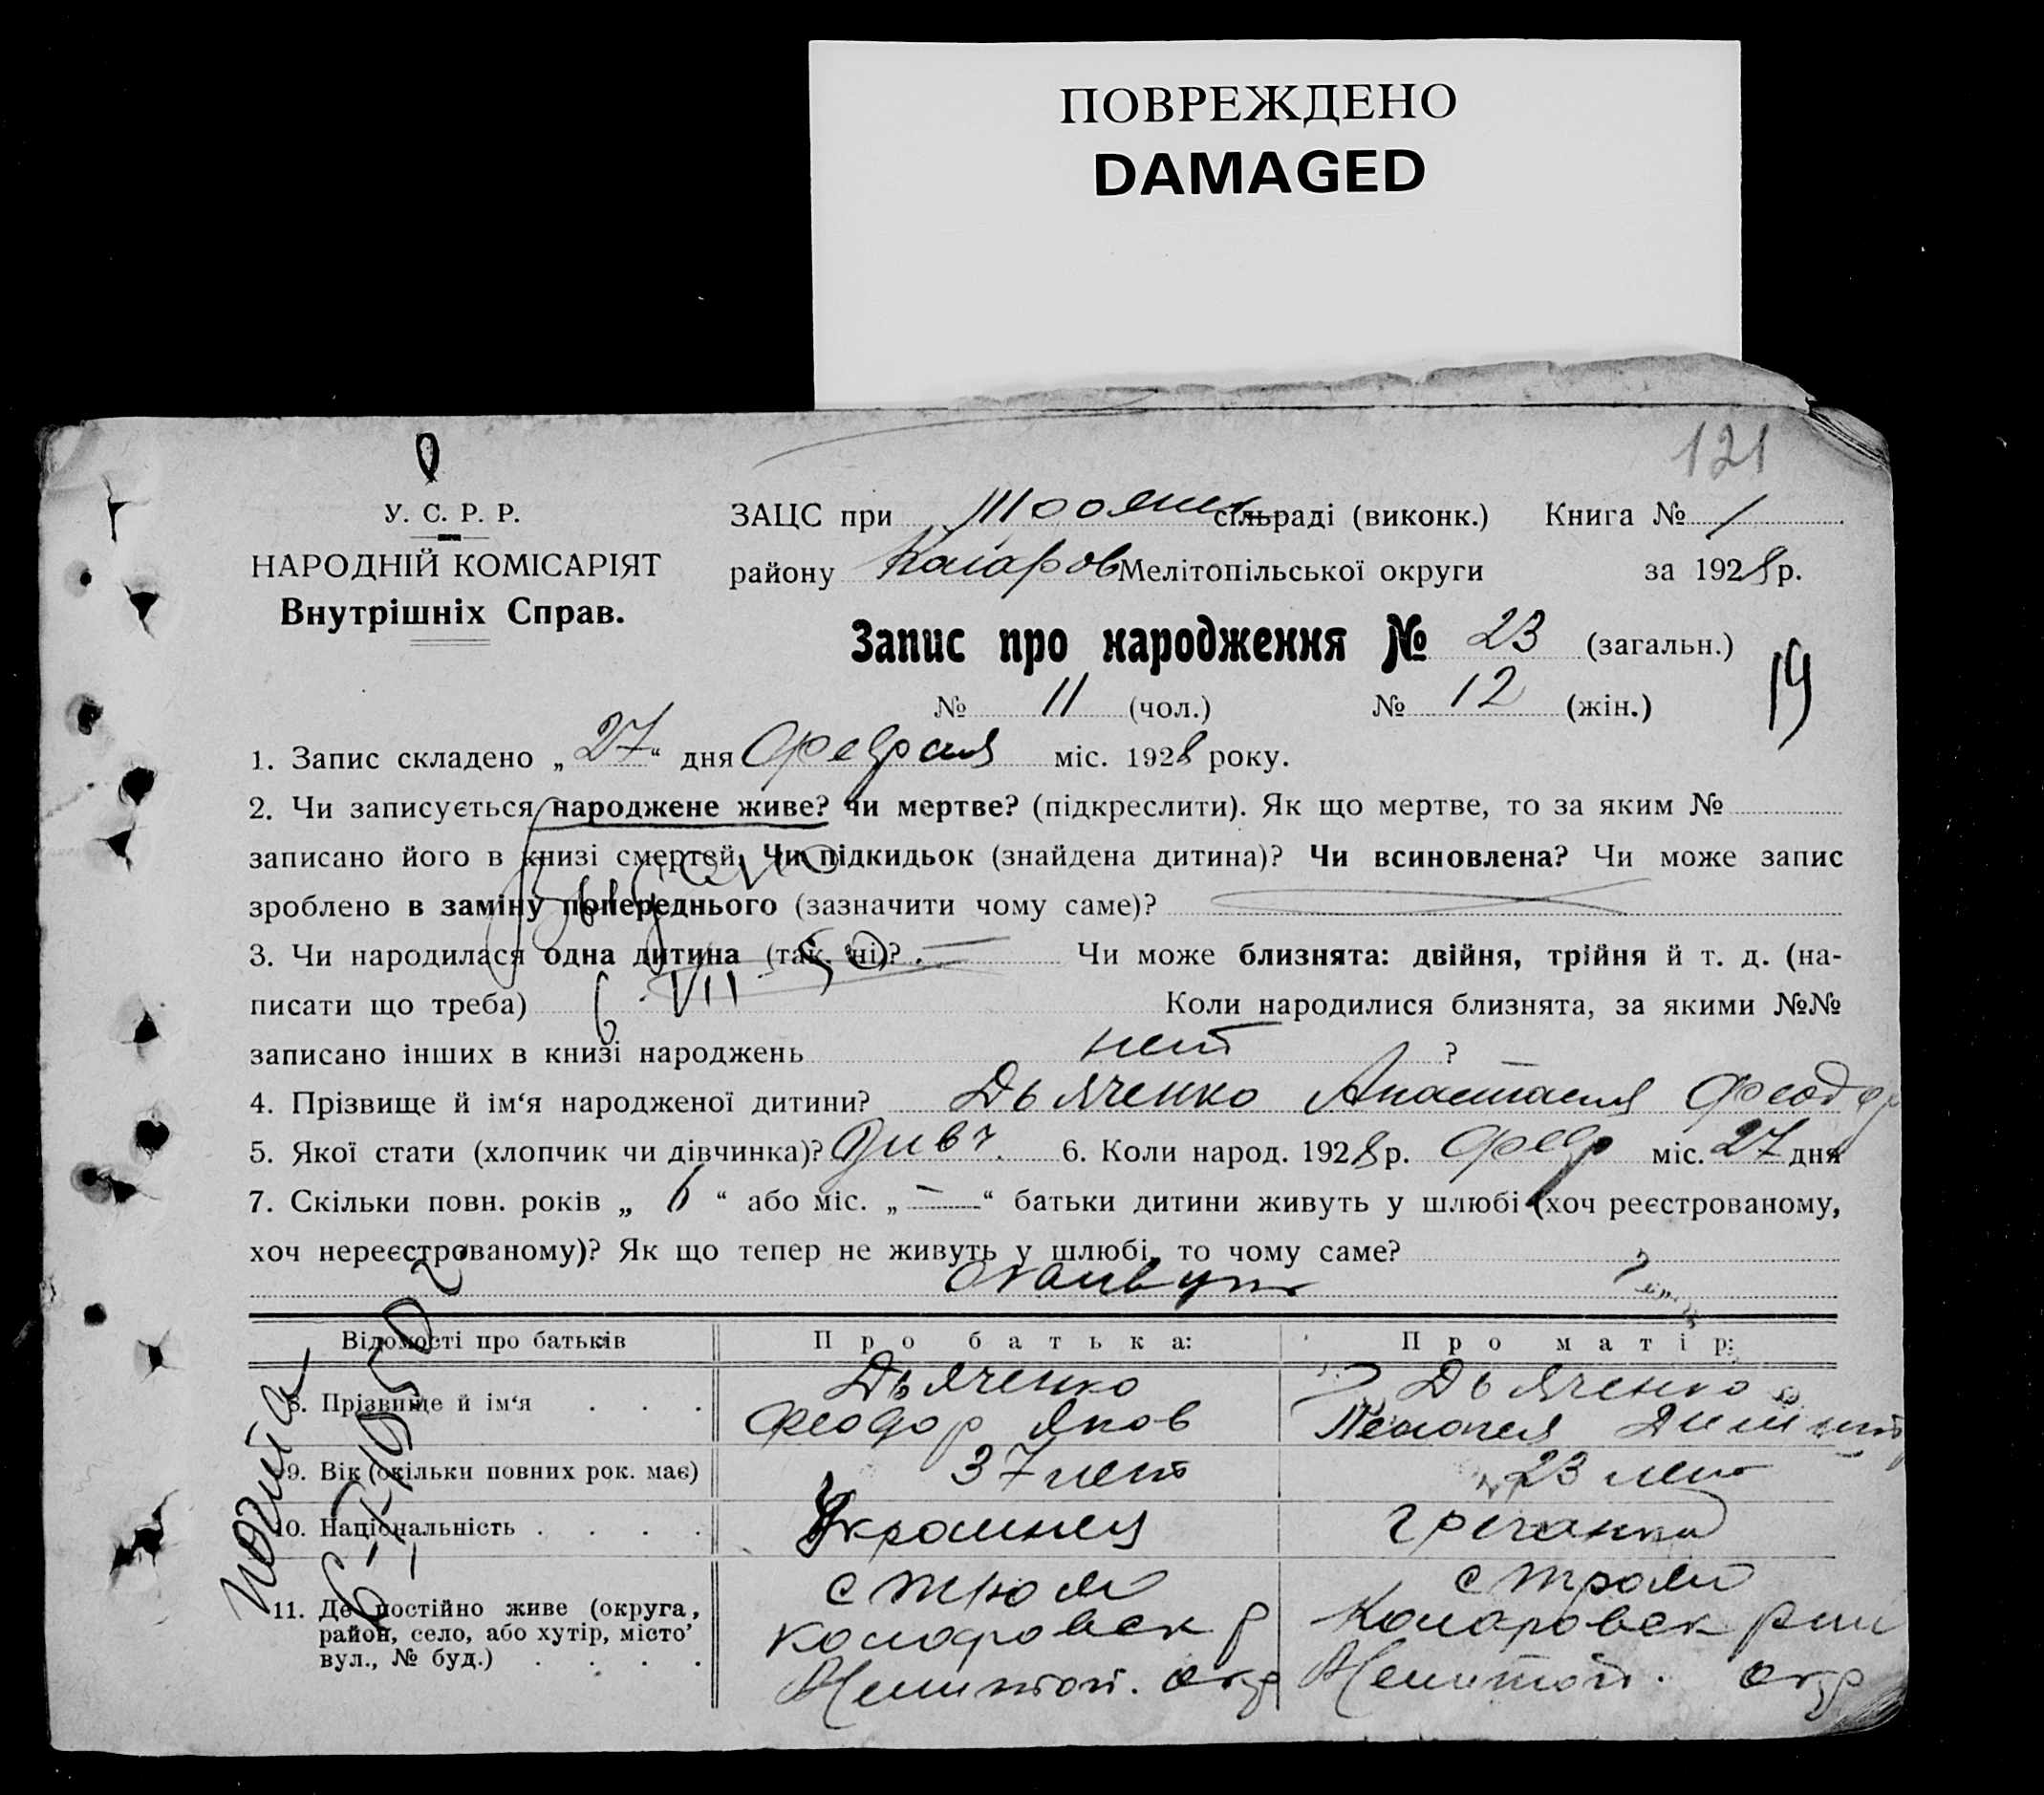 ПОВРЕЖДЕНО
DAMAGED
121
У. С. Р. Р.
НАРОДНІЙ КОМІСАРІЯТ
Внутрішніх Справ.
ЗАЦС при сільраді (виконк.) Книга № 1
району Коларов Мелітопільської округи за 1928 р.
Запис про народження № 23 (загальн.)
№ 11 (чол.) № 12 (жін.)
19
1. Запис складено „27“ дня Февраля міс. 1928 року.
2. Чи записується народжене живе? чи мертве? (підкреслити). Як що мертве, то за яким №
записано його в книзі смертей. Чи підкидьок (знайдена дитина)? Чи всиновлена? Чи може запис
зроблено в заміну попереднього (зазначити чому саме)?
3. Чи народилася одна дитина (так, ні)? Чи може близнята: двійня, трійня й т. д. (на-
писати що треба) Коли народилися близнята, за якими №№
6 VII 50
записано інших в книзі народжень нет ?
4. Прізвище й ім‘я народженої дитини? Дьяченко Анастасия Феодор
5. Якої стати (хлопчик чи дівчинка)? Дивч. 6. Коли народ. 1928 р. Февр міс. 27 дня
7. Скільки повн. років „ 6 “ або міс. „ — “ батьки дитини живуть у шлюбі (хоч реєстрованому,
хоч нереєстрованому)? Як що тепер не живуть у шлюбі, то чому саме?
Відомості про батьків
Про батька:
Про матір:
8. Прізвище й ім‘я . . .
Дьяченко
Феодор Яков
Дьяченко
9. Вік (скільки повних рок. має)
37 лет
23 лет
10. Національність . . . .
Украинец
Гречанка
11. Де постійно живе (округа,
район, село, або хутір, місто’
вул., № буд.) . . . .
с Троян
Коларовск р
Мелитоп. окр
с Троян
Коларовск
Мелитоп. окр